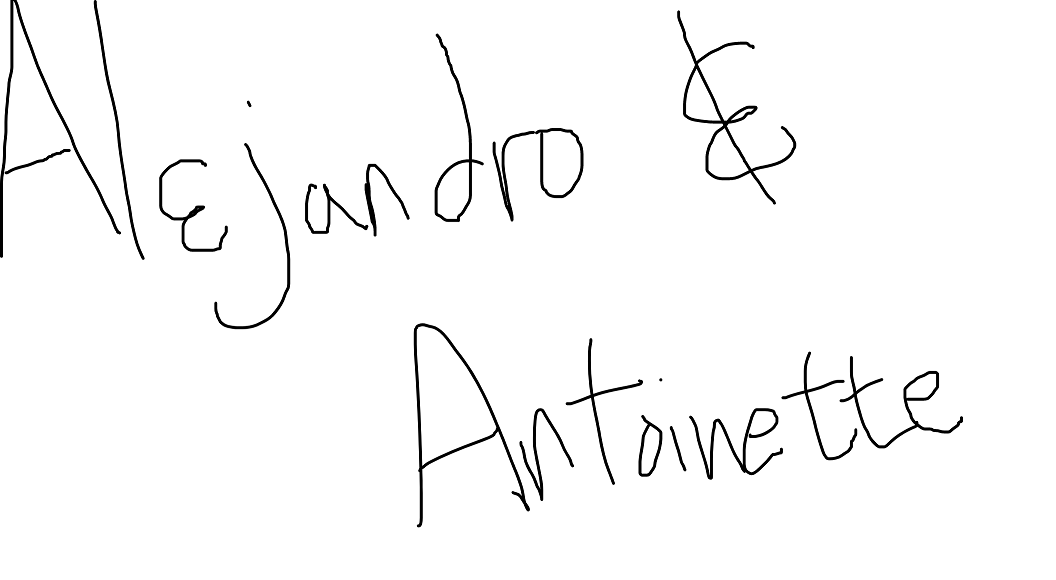 Alejandro &
Antoinette